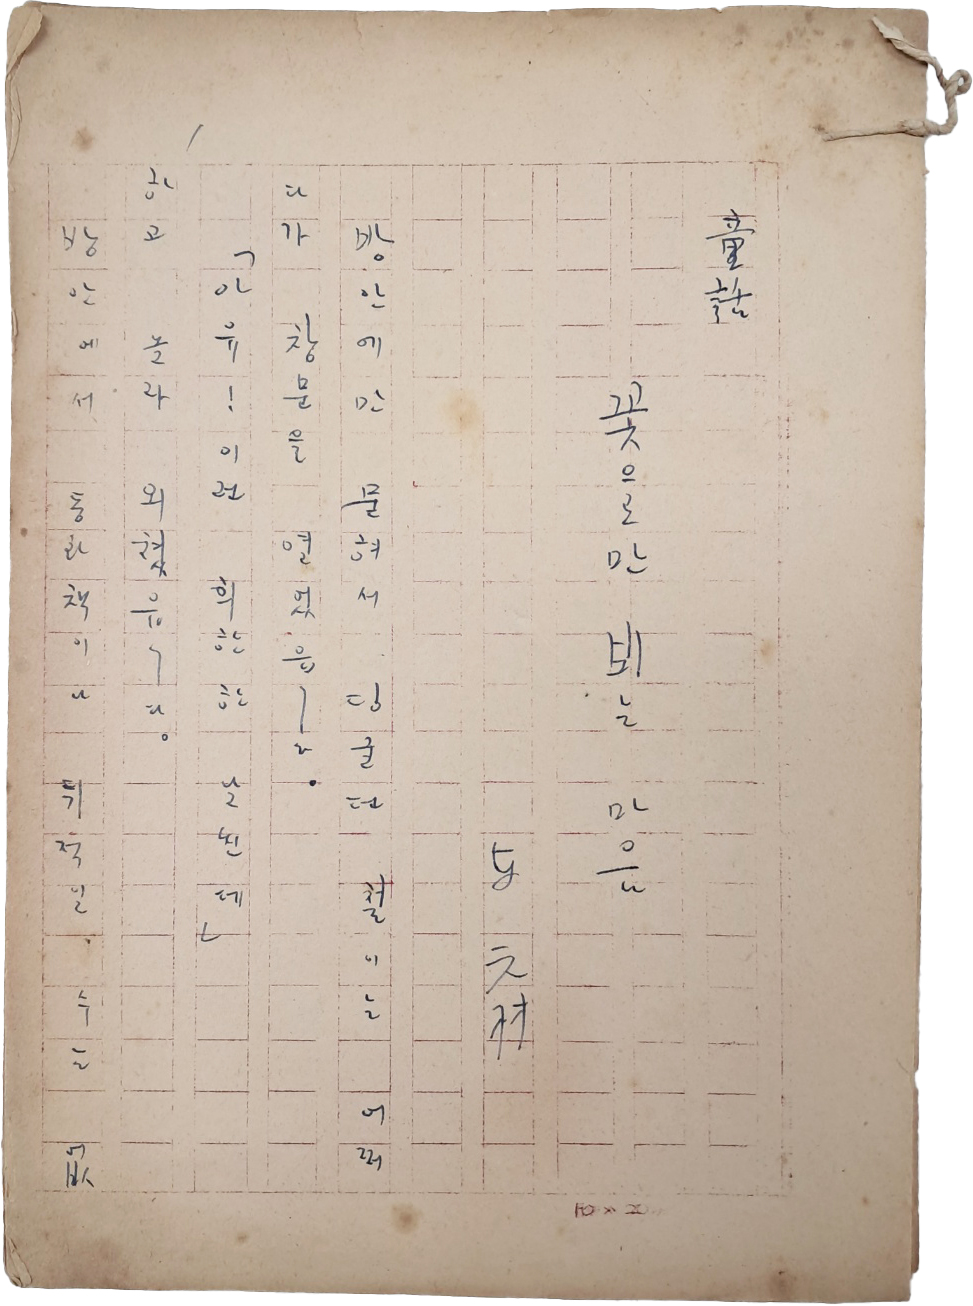 童話
꽃으로만 뵈는 마음
방안에만 문혀서 딩굴던 철이는 어쩌
다가 창문을 열었읍니다.
「아유! 이런 희한한 날씬데」
하고 놀라 외쳤읍니다.
방안에서 동화책이나 뒤적일 수는 없
10×20